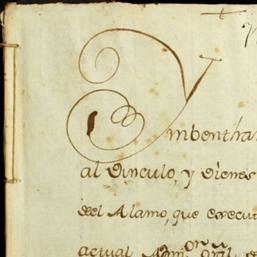 Ymbentha
al Vinculo, y vienes
del Alamo, que execu
actual Adm.or Gral